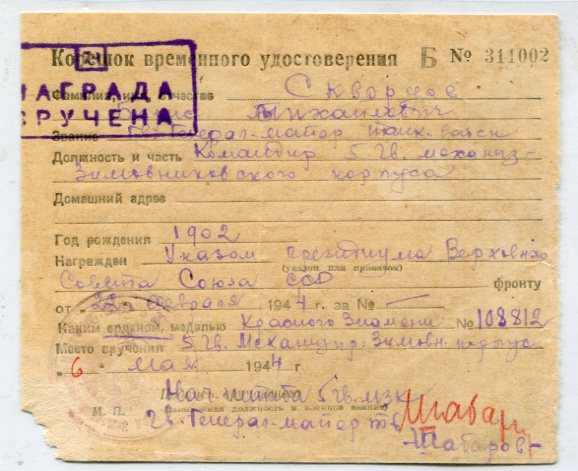 21
НАГРАДА
ВРУЧЕНА
Корешок временного удостоверения Б № 311002
Фамилия имя отчество Скворцов
Борис Михайлович
Звание Гв. Генерал-майор танк. войск
Должность и часть Командир 5 гв. механиз-
Зимовниковского корпуса
Домашний адрес
Год рождения 1902
Награжден Указом президиума Верховного
(указом или приказом)
Совета Союза ССР фронту
от " 22 " февраля 1944 г. за № —
Каким орденом, медалью Красного Знамени № 108812
Место вручения 5 гв. Механизир. Зимовн. корпус
" 6 " мая 1944 г.
Нач. штаба 5 гв. мзк
И. П. (занимаемая должность и военное звание)
гв. Генерал-майор т/в
Шабаров